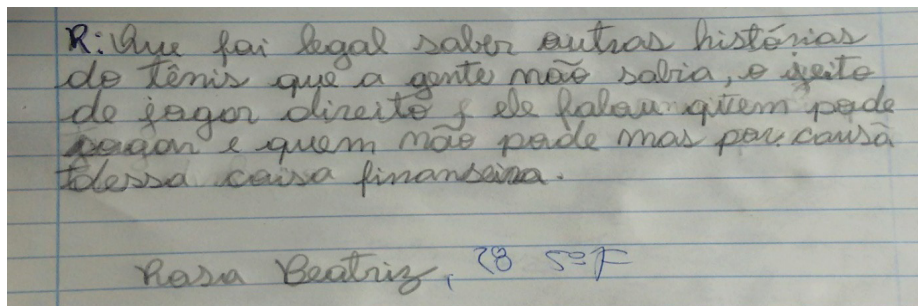 R: Que foi legal saber outras histórias
do tênis que a gente não sabia, o jeito
de jogar direito, ele falou quem pode
jogar e quem não pode mas por causa
dessa coisa finanseira.
Rosa Beatriz, 28 5º F